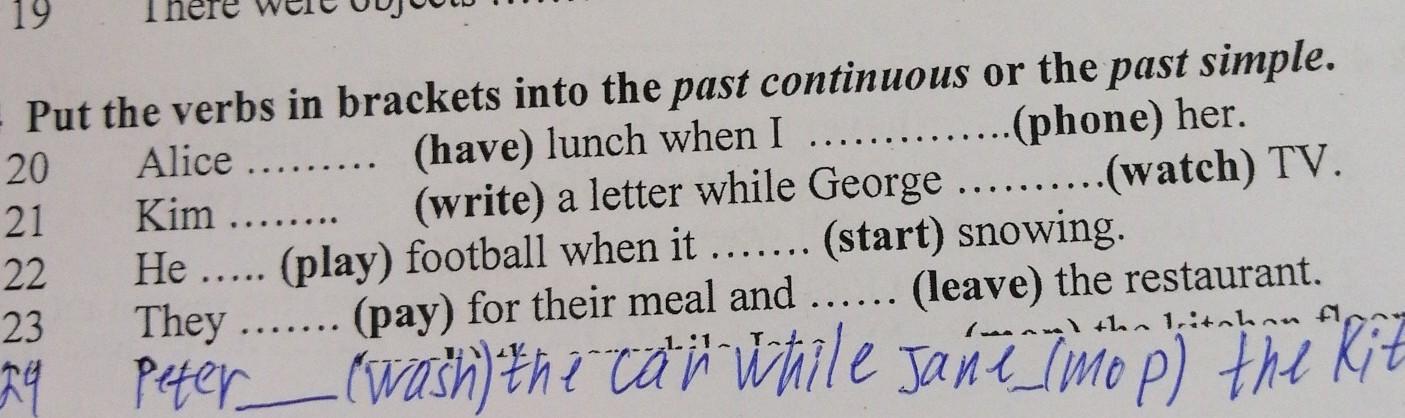 19 There were objects ......
Put the verbs in brackets into the past continuous or the past simple.
20 Alice ......... (have) lunch when I ...............(phone) her.
21 Kim ........ (write) a letter while George ..........(watch) TV.
22 He ..... (play) football when it ....... (start) snowing.
23 They ....... (pay) for their meal and ...... (leave) the restaurant.
24 Peter___(wash) the car while Jane_(mop) the Kit